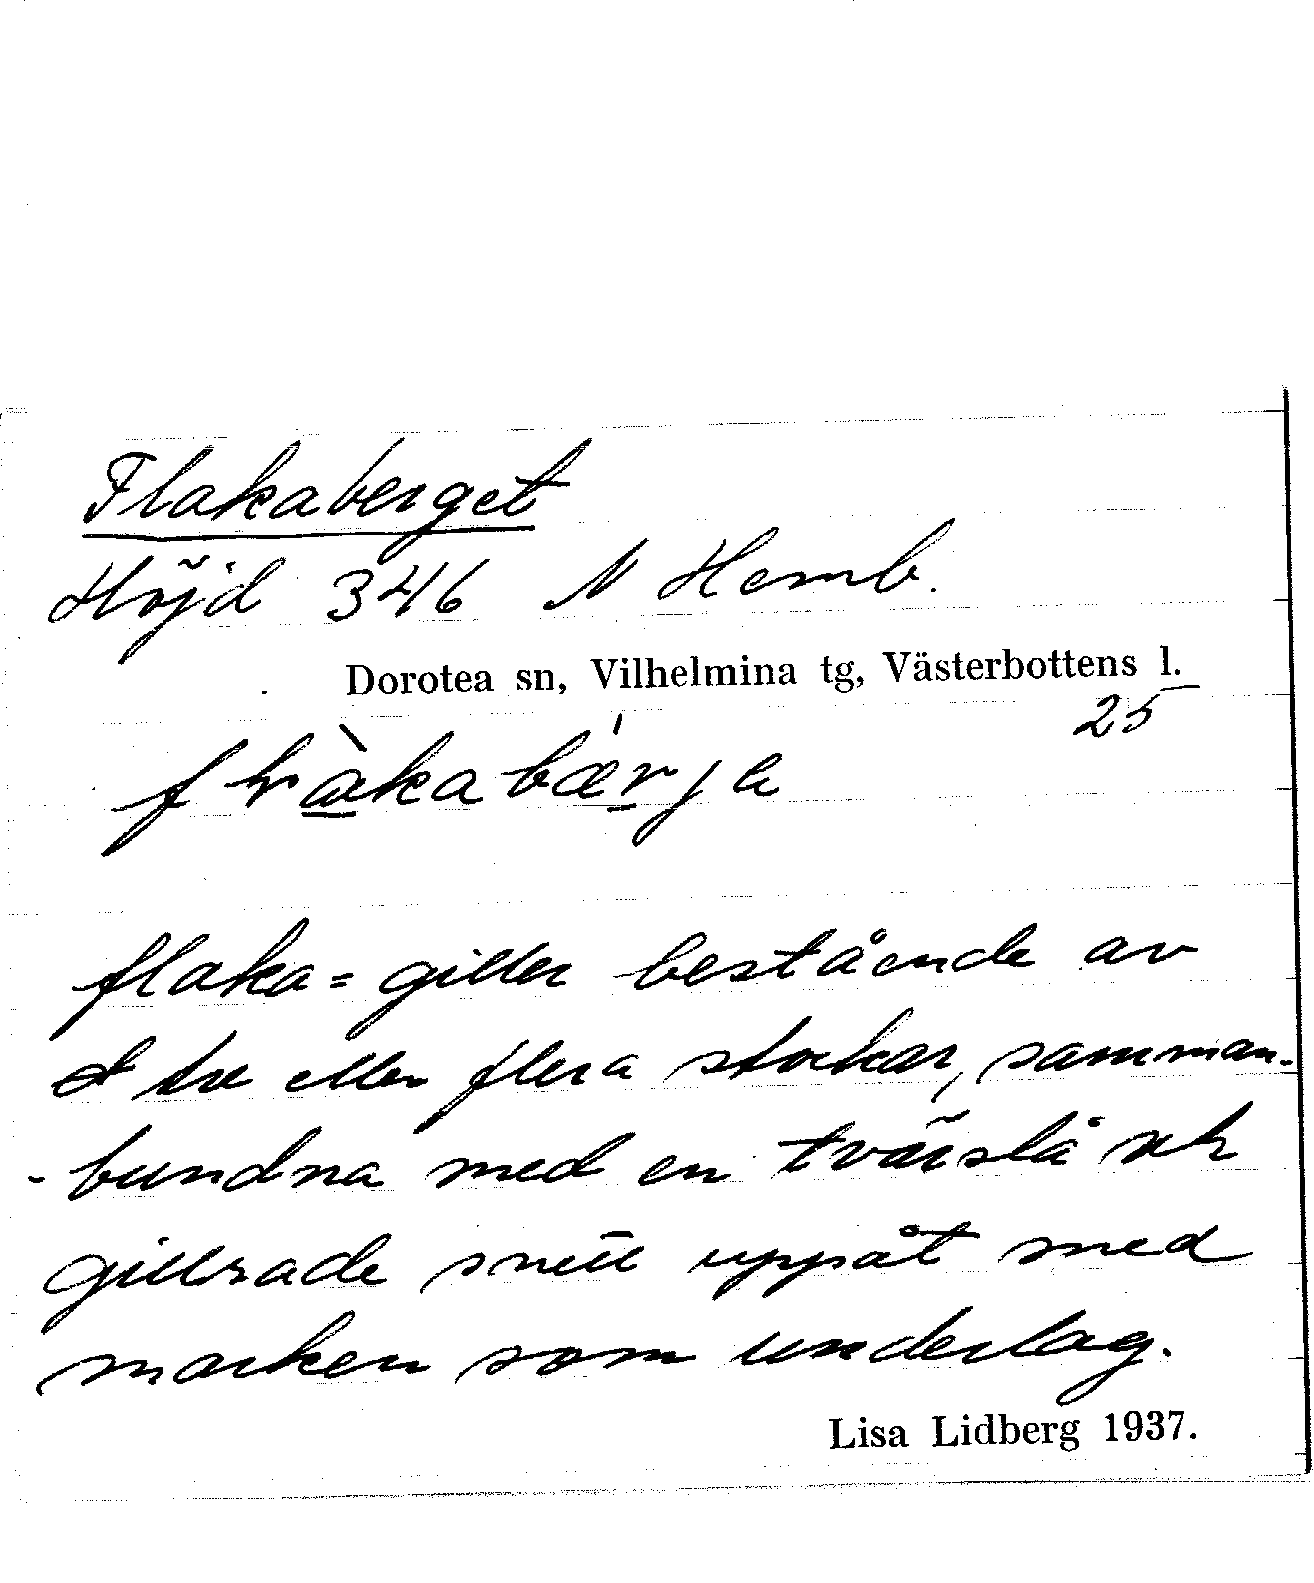 Flakaberget
Höjd 346 N Hemb.
Dorotea sn, Vilhelmina tg, Västerbottens l.
25
flaka = giller bestående av
tre eller flera stockar, samman-
-bundna med en tvärslå och
gillrade snett uppåt med
marken som underlag.
Lisa Lidberg 1937.